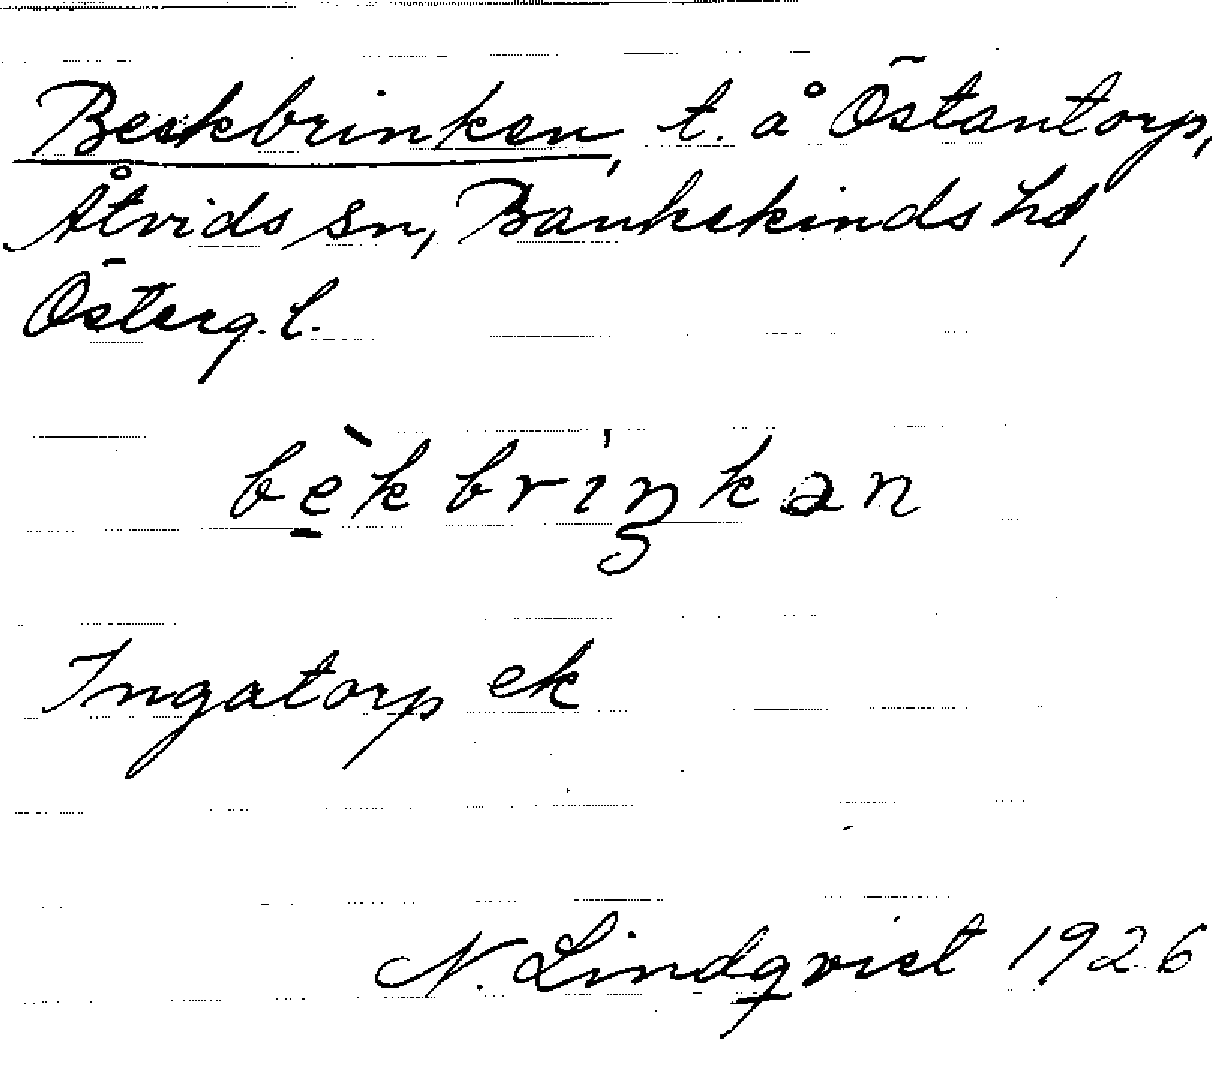 Beskbrinken, t. å Östantorp,
Åtvids sn, Bankekinds hd,
Österg. l.
bèkbriŋkən
Ingatorp ek
N. Lindqvist 1926